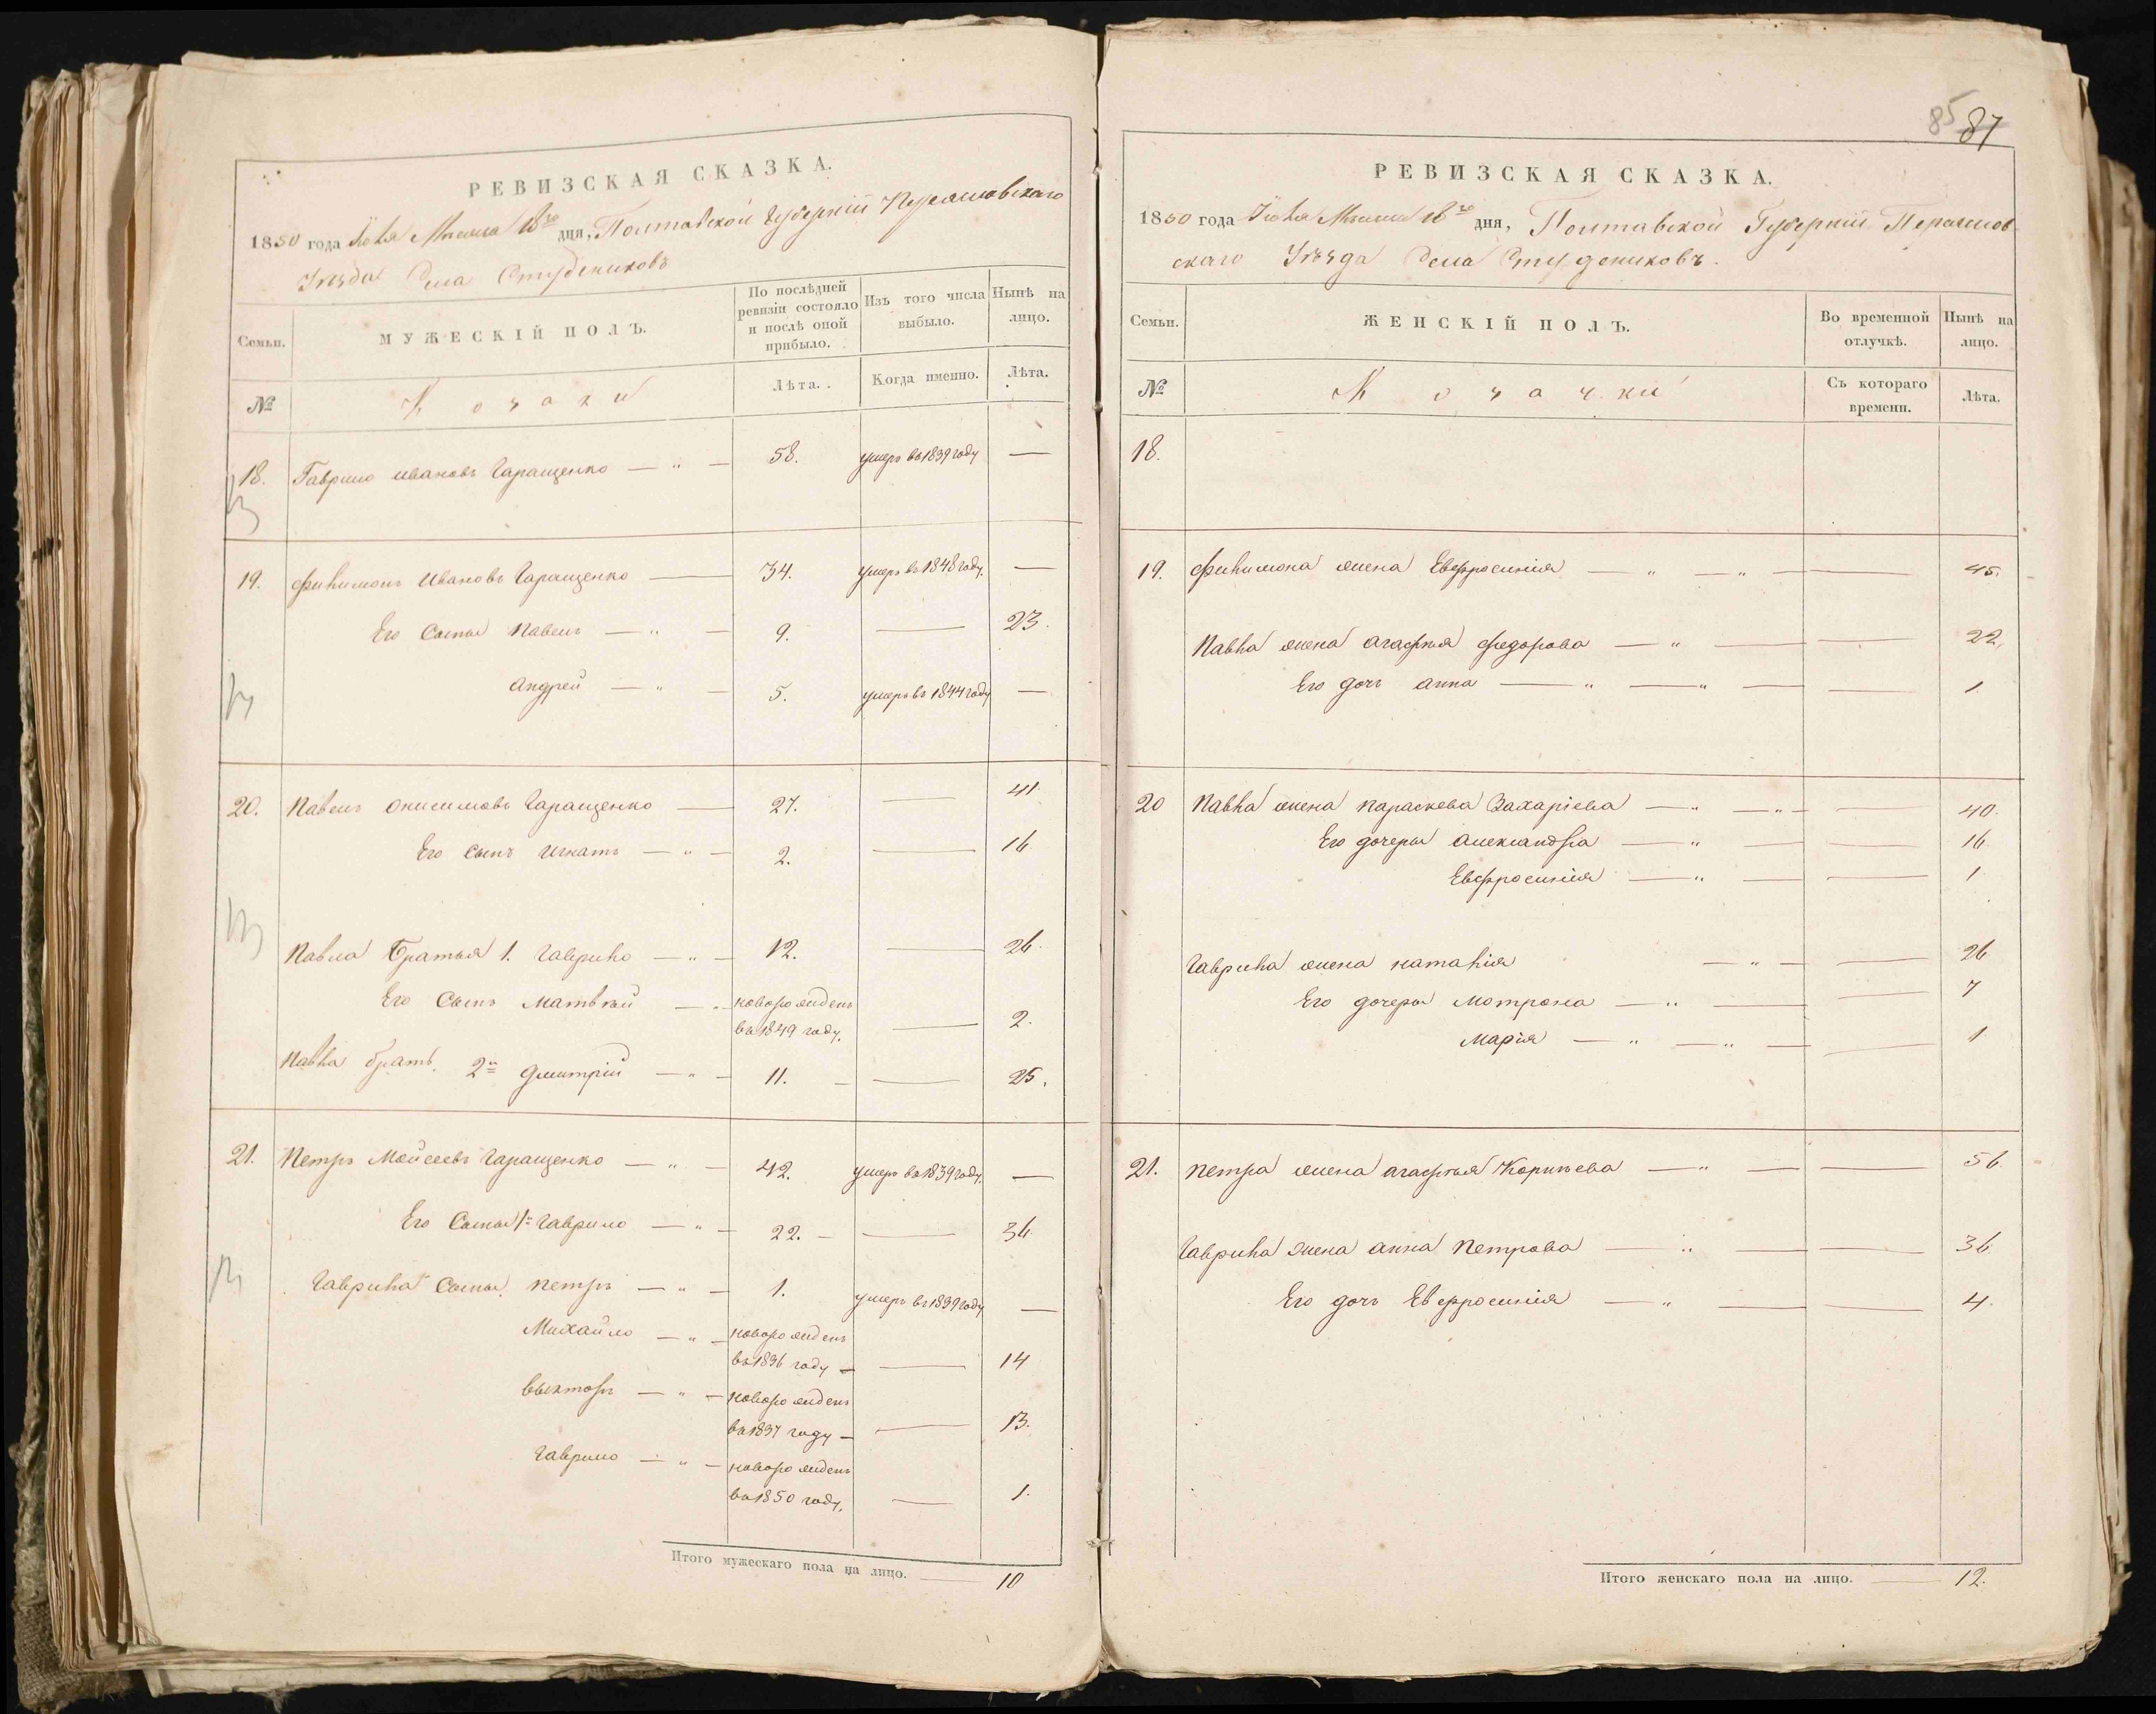 85 87
РЕВИЗСКАЯ СКАЗКА.
1850 года Іюля Месяца 18го дня, Полтавской Губерніи Переяславского
Уезда Села Студениковъ
Семьи.
МУЖЕСКІЙ ПОЛЪ.
По послѣдней ревизіи состояло и послѣ оной прибыло.
Изъ того числа выбыло.
Нынѣ на лицо.
№
Козаки
Лѣта.
Когда именно.
Лѣта.
18. Гаврило Ивановъ Гаращенко — " — 58. умеръ въ 1839 году —
19. Филимонъ Ивановъ Гаращенко — 34. умеръ въ 1848 году. —
Его Сыны Павелъ — " — 9. — 23.
Андрей — " — 5. умеръ въ 1844 году —
20. Павелъ Онисимовъ Гаращенко — 27. — 41.
Его Сынъ Игнатъ — " — 2. — 16
Павла Братья 1. Гаврило — " — 12. — 26.
Его Сынъ Матвей — " — новорожденъ
въ 1849 году. — 2.
Павла братъ. 2й Дмитрій — " — 11. — 25.
21. Петръ Мойсеевъ Гаращенко — " — 42. умеръ въ 1839 году. —
Его Сыны 1й Гаврило — " — 22. — 36.
Гаврила Сыны Петръ — " — 1. умеръ въ 1839 году —
Михайло — " — новорожденъ
въ 1836 году — 14
Выкторъ — " — новорожденъ
въ 1837 году — 13.
Гаврило — " — новорожденъ
въ 1850 году. — 1.
Итого мужескаго пола на лицо. — 10
РЕВИЗСКАЯ СКАЗКА.
1850 года Іюля Месяца 18го дня, Полтавской Губерніи Переяслов
скаго Уезда Села Студениковъ.
Семьи.
ЖЕНСКІЙ ПОЛЪ.
Во временной отлучкѣ.
Нынѣ на лицо.
№
Козачки
Съ котораго времени.
Лѣта.
18.
19. Филимона жена Евфросинія — " — " — 45.
Павла жена Агафия Федорова — " — 22.
Его дочь Анна — " — " — 1.
20 Павла жена Параскева Захаріева — " — " — 40.
Его дочеры Александра — " — 16.
Евфросинія — " — 1
Гаврила жена Наталія — " — 26
Его дочеры Мотрона — " — 7
Марія — " — " — 1
21. Петра жена Агафья Корнѣева — " — 56.
Гаврила жена Анна Петрова — " — 36
Его дочь Евфросинія — " — 4.
Итого женскаго пола на лицо. — 12.